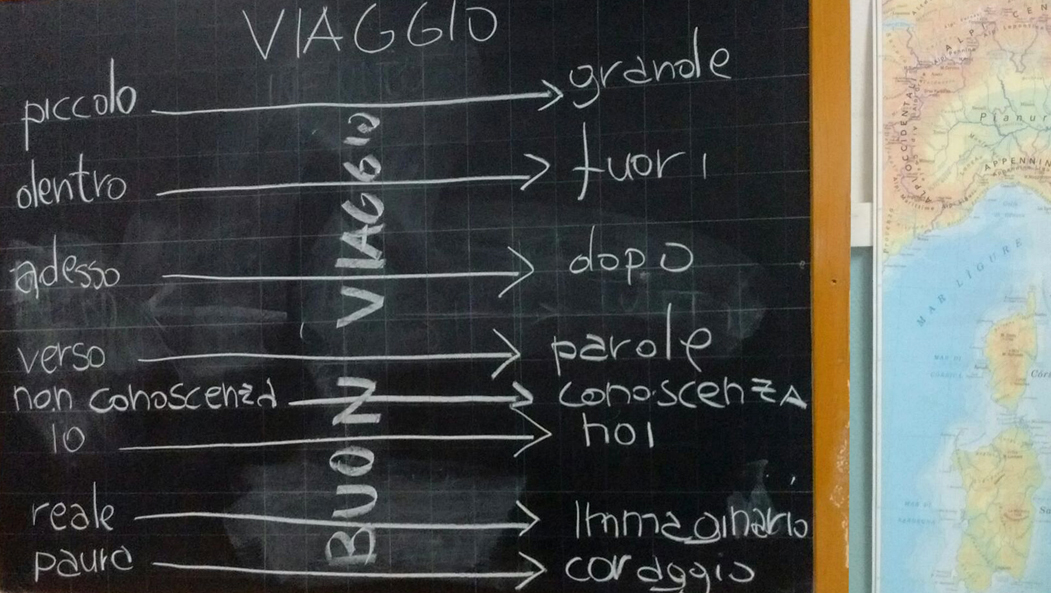 VIAGGIO
piccolo → grande
dentro → fuori
adesso → dopo
verso → parole
non conoscenza → conoscenza
io → noi
reale → Immaginario
paura → coraggio
BUON VIAGGIO
ALPI OCCIDENTALI
ALP
CEN
Planur
APPENNIN
MAR LIGURE